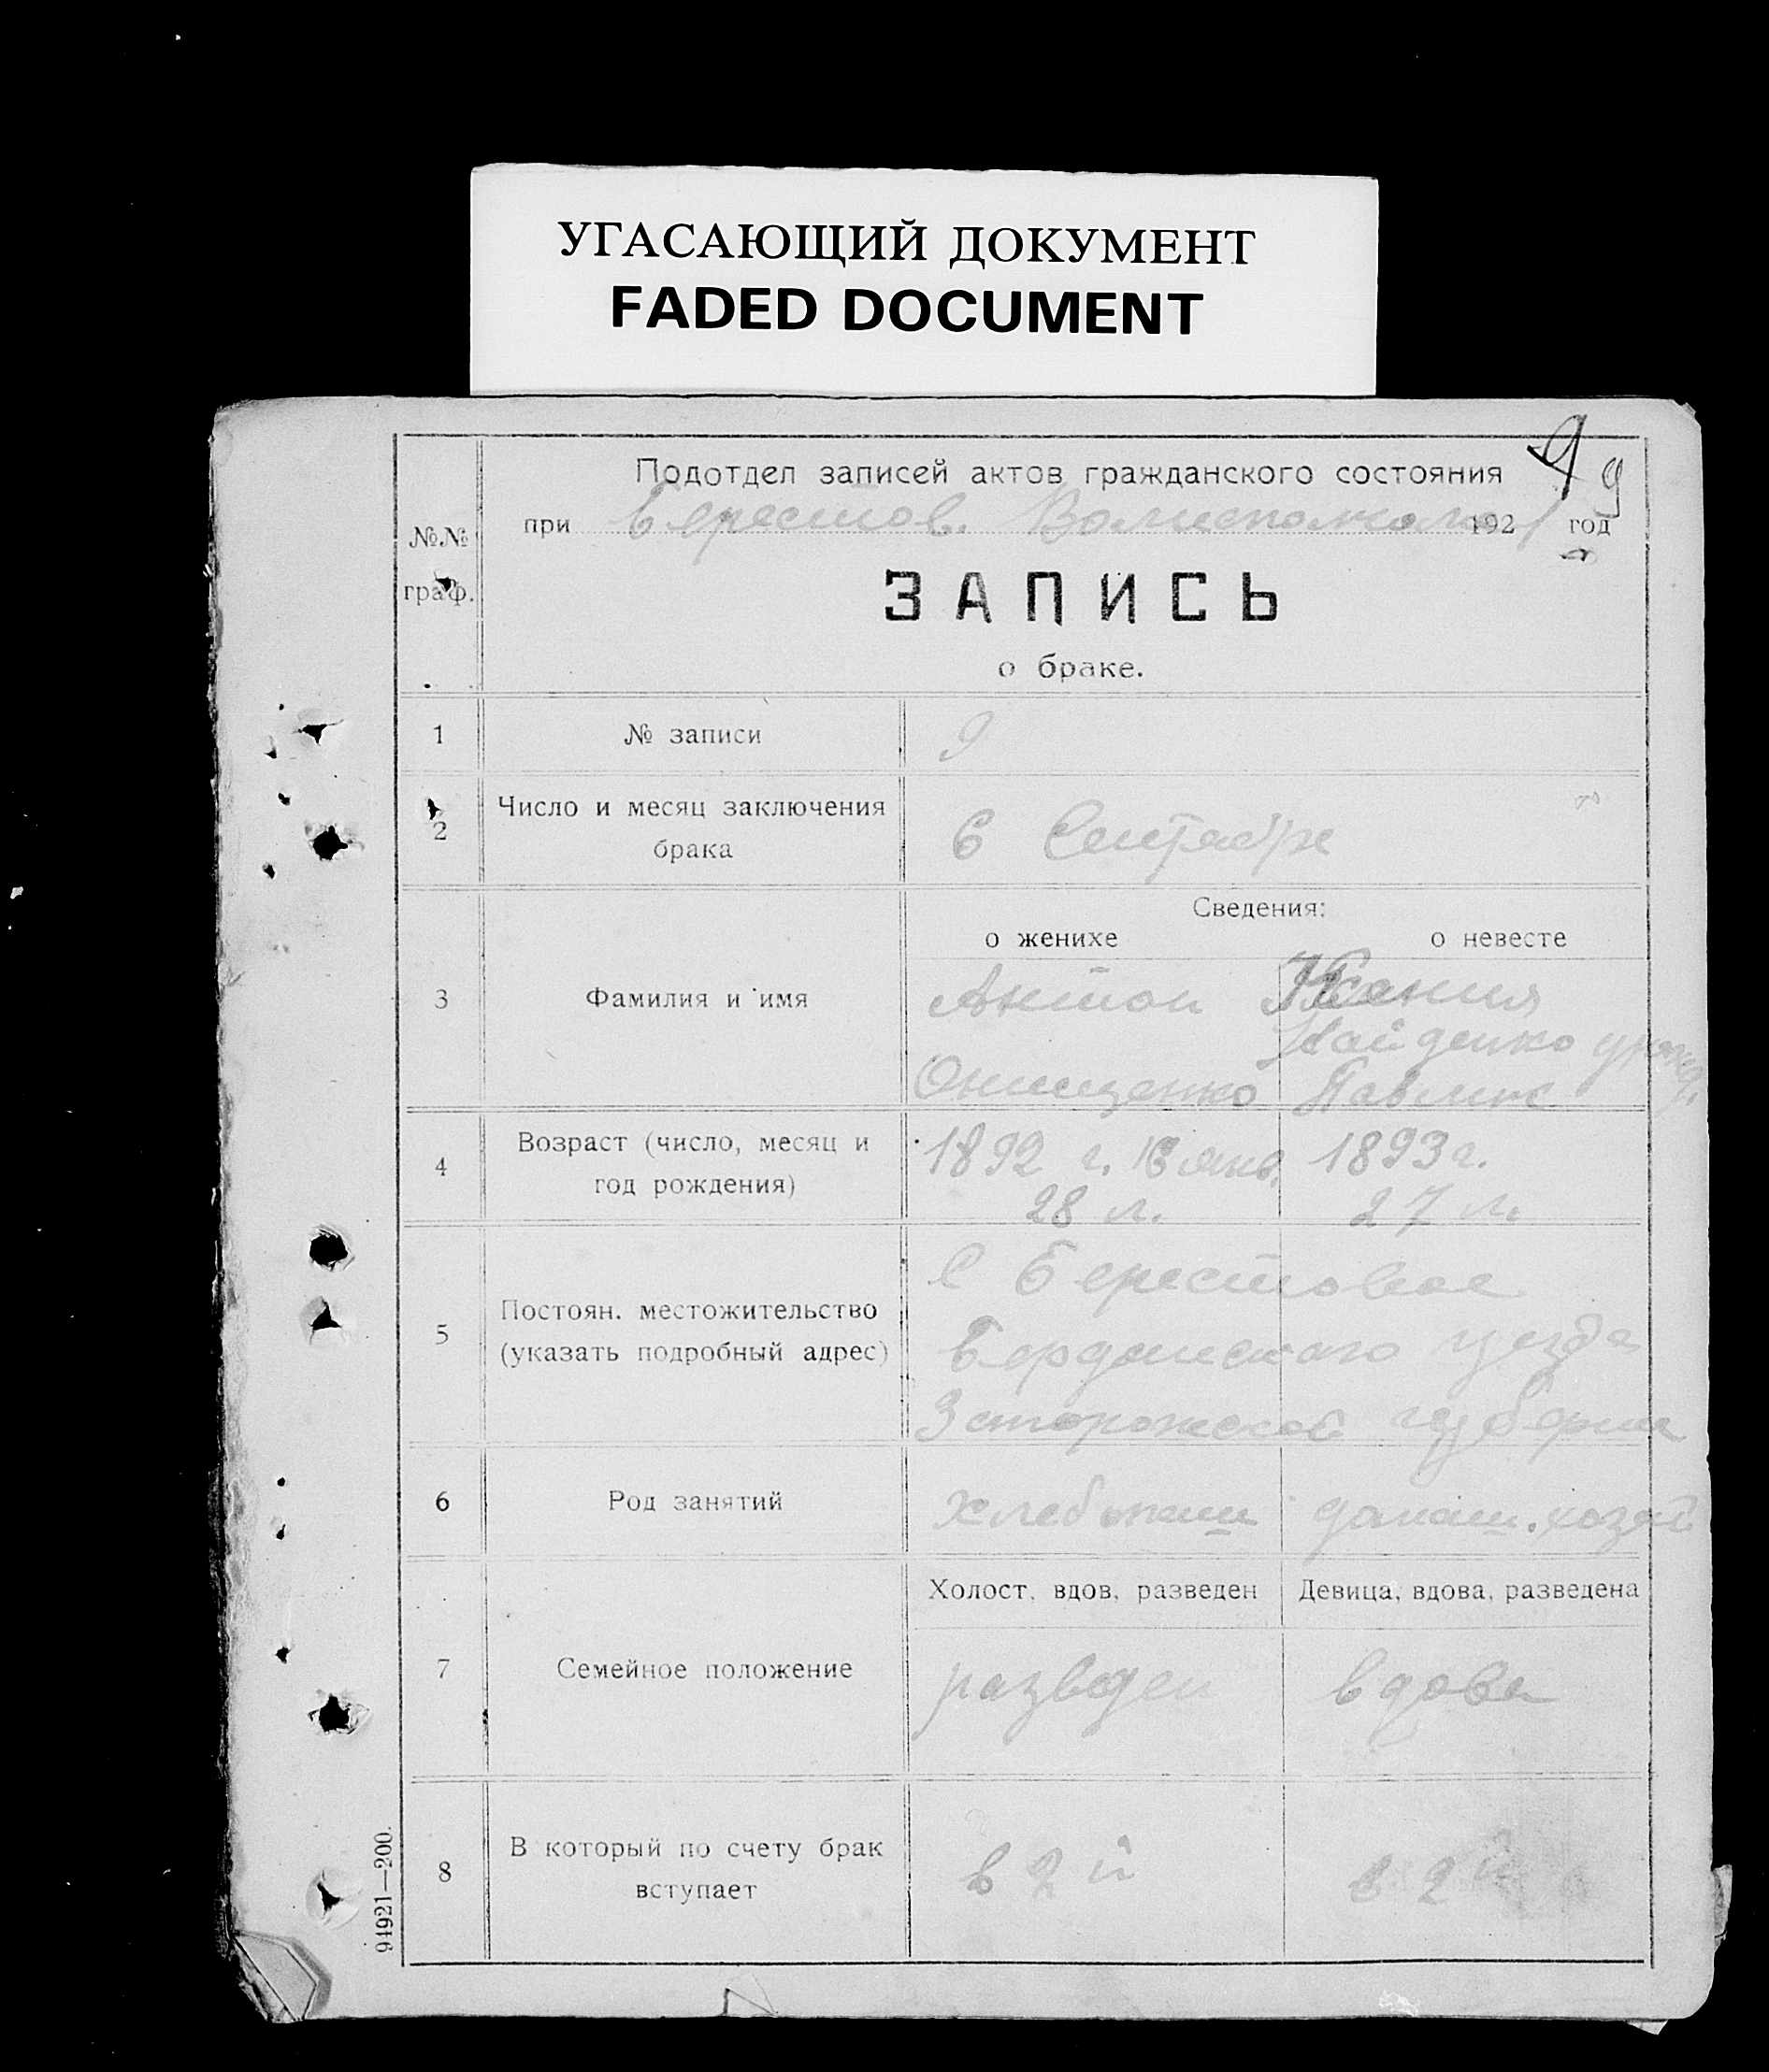 УГАСАЮЩИЙ ДОКУМЕНТ
FADED DOCUMENT
9 9
Подотдел записей актов гражданского состояния
№№ граф.
при Берестов. Волисполкоме 1921 год
ЗАПИСЬ
о браке.
1 № записи 9
2 Число и месяц заключения
брака
6 Сентября
Сведения:
о женихе о невесте
3 Фамилия и имя
Антон Ксения
Найденко урожд.
Онищенко Павлик
4 Возраст (число, месяц и
год рождения)
1892 г. янв. 1893 г.
28 л. 27 л.
5 Постоян. местожительство
(указать подробный адрес)
С Берестовое
Бердянского уезда
Запорожской губернии
6 Род занятий
хлебопаш домаш. хозяй
Холост, вдов, разведен Девица, вдова, разведена
7 Семейное положение
разведен вдова
8 В который по счету брак
вступает
в 2й в 2й
94921—200.